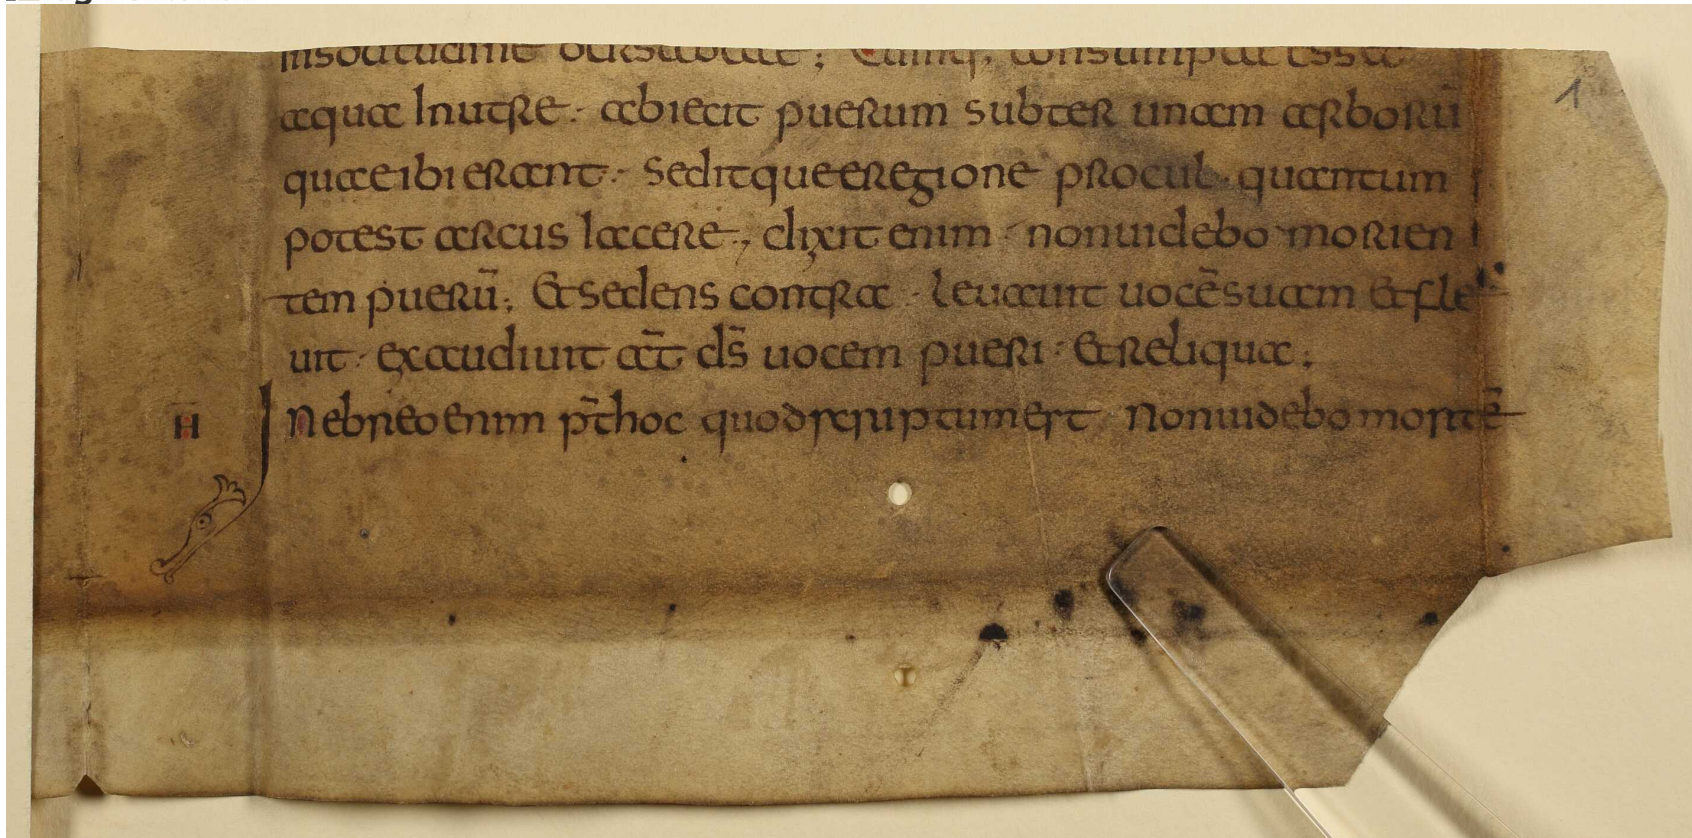 insolitudine bersabeae; Cumq; consumpta esset
aqua Inutre · abiecit puerum subter unam arborū
quae ibi erant · Seditque e regione procul · quantum
potest arcus Iacere, dixit enim · non uidebo morien
tem puerū; Et sedens contra · leuauit uocē suam et fle
uit · exaudiuit aūt ds̄ uocem pueri · Et reliqua;
H
IN ebreo enim p̄t hoc quod scriptum est · Non uidebo mortē
1